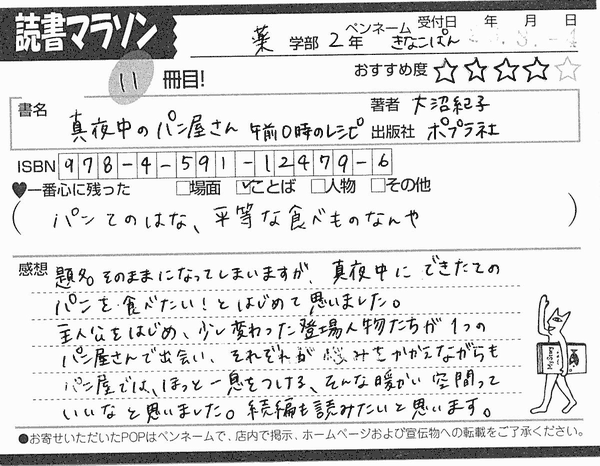 読書マラソン
薬 学部 2 年 ペンネーム きなこぱん 受付日 年 月 日
11 冊目! おすすめ度 ★★★★☆
書名 真夜中のパン屋さん 午前0時のレシピ 著者 大沼紀子 出版社 ポプラ社
ISBN 978-4-591-12479-6
♥一番心に残った □場面 ☑ことば □人物 □その他
( パンてのはな、平等な食べものなんや )
感想 題名そのままになってしまいますが、真夜中にできたての
パンを食べたい!とはじめて思いました。
主人公をはじめ、少し変わった登場人物たちが1つの
パン屋さんで出会い、それぞれが悩みをかかえながらも
パン屋では、ほっと一息をつける、そんな暖かい空間って
いいなと思いました。続編も読みたいと思います。
●お寄せいただいたPOPはペンネームで、店内で掲示、ホームページおよび宣伝物への転載をご了承ください。